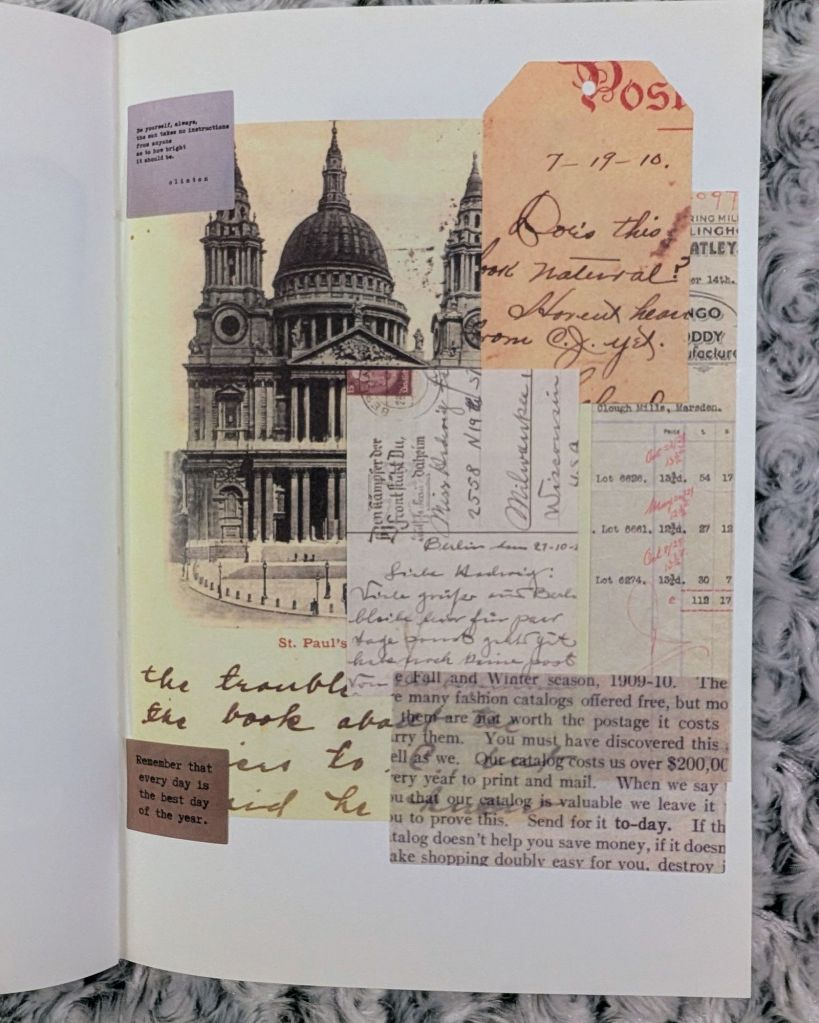 Be yourself, always,
the sun takes no instructions
from anyone
as to how bright
it should be.
clinton
Post
7-19-10.
Does this
look natural?
Havent hear
from C.J. yet.
097
RING MIL
LINGH
ATLEY
er 14th.
NGO
ODDY
ufacture
Clough Mills, Marsden.
PRICE £ S
Lot 6626. 13¾d. 54 17
Lot 6661. 12¾d. 27 12
Lot 6274. 13¾d. 30 7
£ 112 17
Den Kämpfer der
Front stützt Du,
Daheim
Miss Hedwig
2558 N 19th St
Milwaukee
Wisconsin
USA
Berlin den 27-10-
Liebe Hedwig:
Viele grüße aus Berli
bleibe hier für paar
tage sonst geht gut
keine post
von
St. Paul's
the trouble
the book abo
to
said he
e Fall and Winter season, 1909-10. The
re many fashion catalogs offered free, but mo
them are not worth the postage it costs
arry them. You must have discovered this
ell as we. Our catalog costs us over $200,00
very year to print and mail. When we say
ou that our catalog is valuable we leave it
ou to prove this. Send for it to-day. If th
talog doesn't help you save money, if it doesn
ake shopping doubly easy for you, destroy i
Remember that
every day is
the best day
of the year.